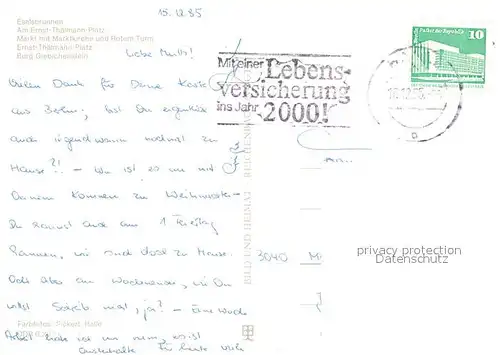 15.12.85
Eselsbrunnen
Am Ernst-Thälmann-Platz
Markt mit Marktkirche und Rotem Turm
Ernst-Thälmann-Platz
Burg Giebichenstein
Liebe
Vielen Dank für Deine Karte
aus Berlin, bist Du eigentlich
auch irgendwann nochmal zu
Hause?! - Wie ist es nun mit
Deinem Kommen zu Weihnachten -
Du kannst auch am 1. Feiertag
kommen, wir sind doch zu Hause.
Oder aber am Wochenende, wie Du
willst. Schreib mal, ja? - Eine
Arbeit habe ich nun
Für heute viele
Mit einer
Lebens-
versicherung
ins Jahr
2000!
Palast der Republik
10
DDR
BILD UND HEIMAT REICHENBACH
3040
privacy protection
Datenschutz